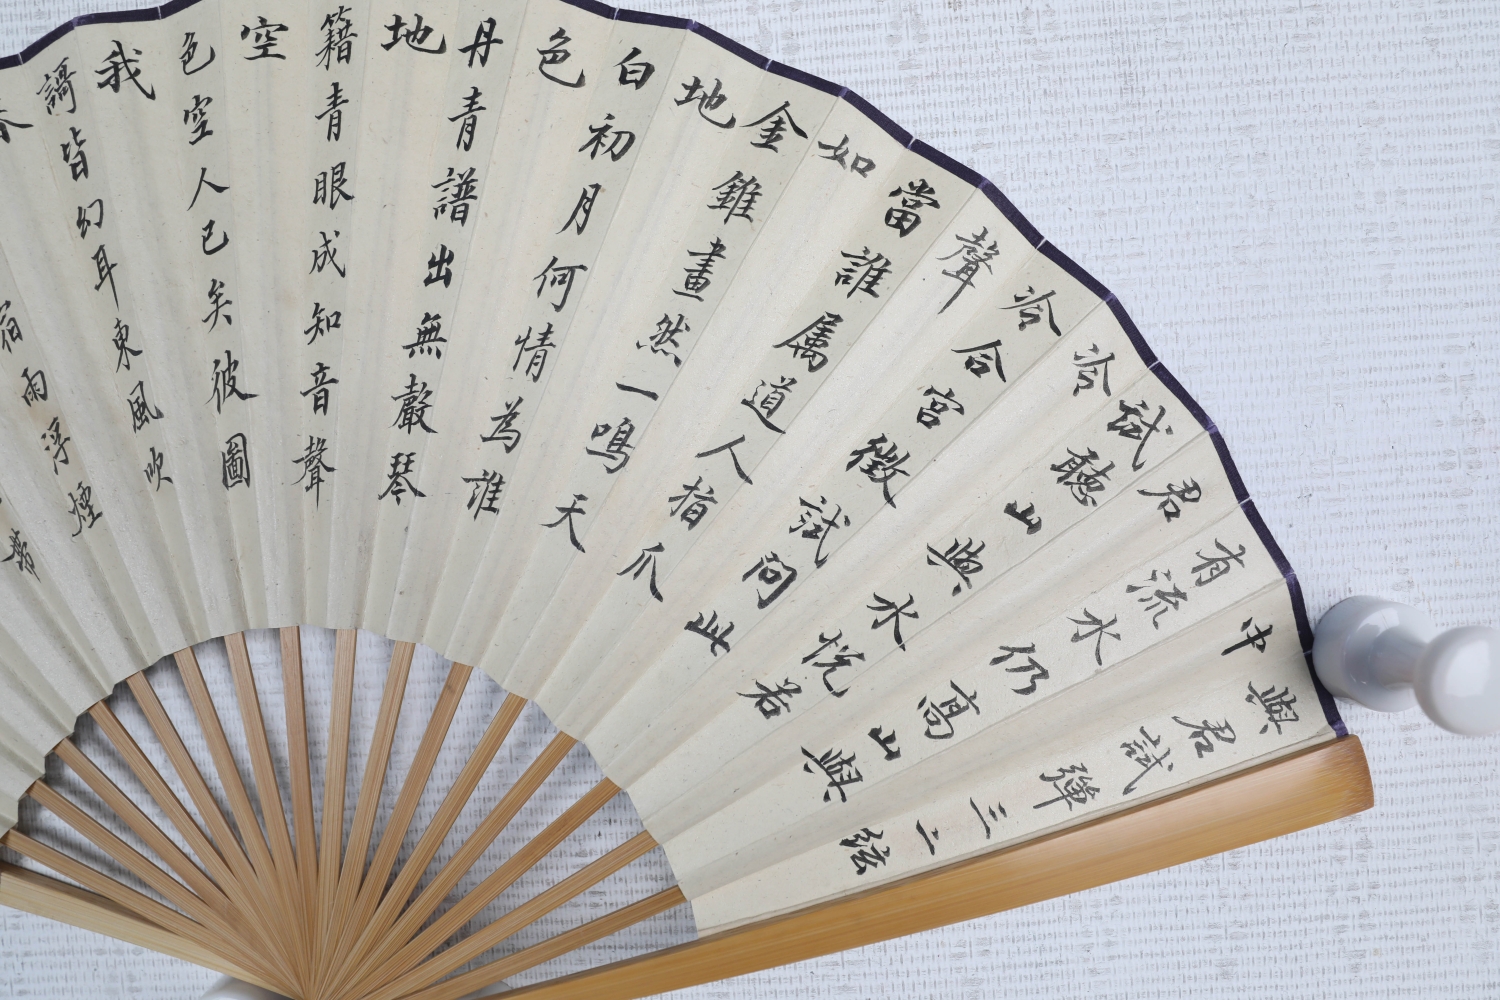 與君試彈三二絃
中
有流水仍高山與
君
試聽山與水恍若
泠
泠合宮徵試問此
聲
當誰属道人指爪
如
金錐畫然一鳴天
地
白初月何情為誰
色
丹青譜出無聲琴
地
籍青眼成知音聲
空
色空人已矣彼圖
我
謌皆幻耳東風吹
春
宿雨浮煙